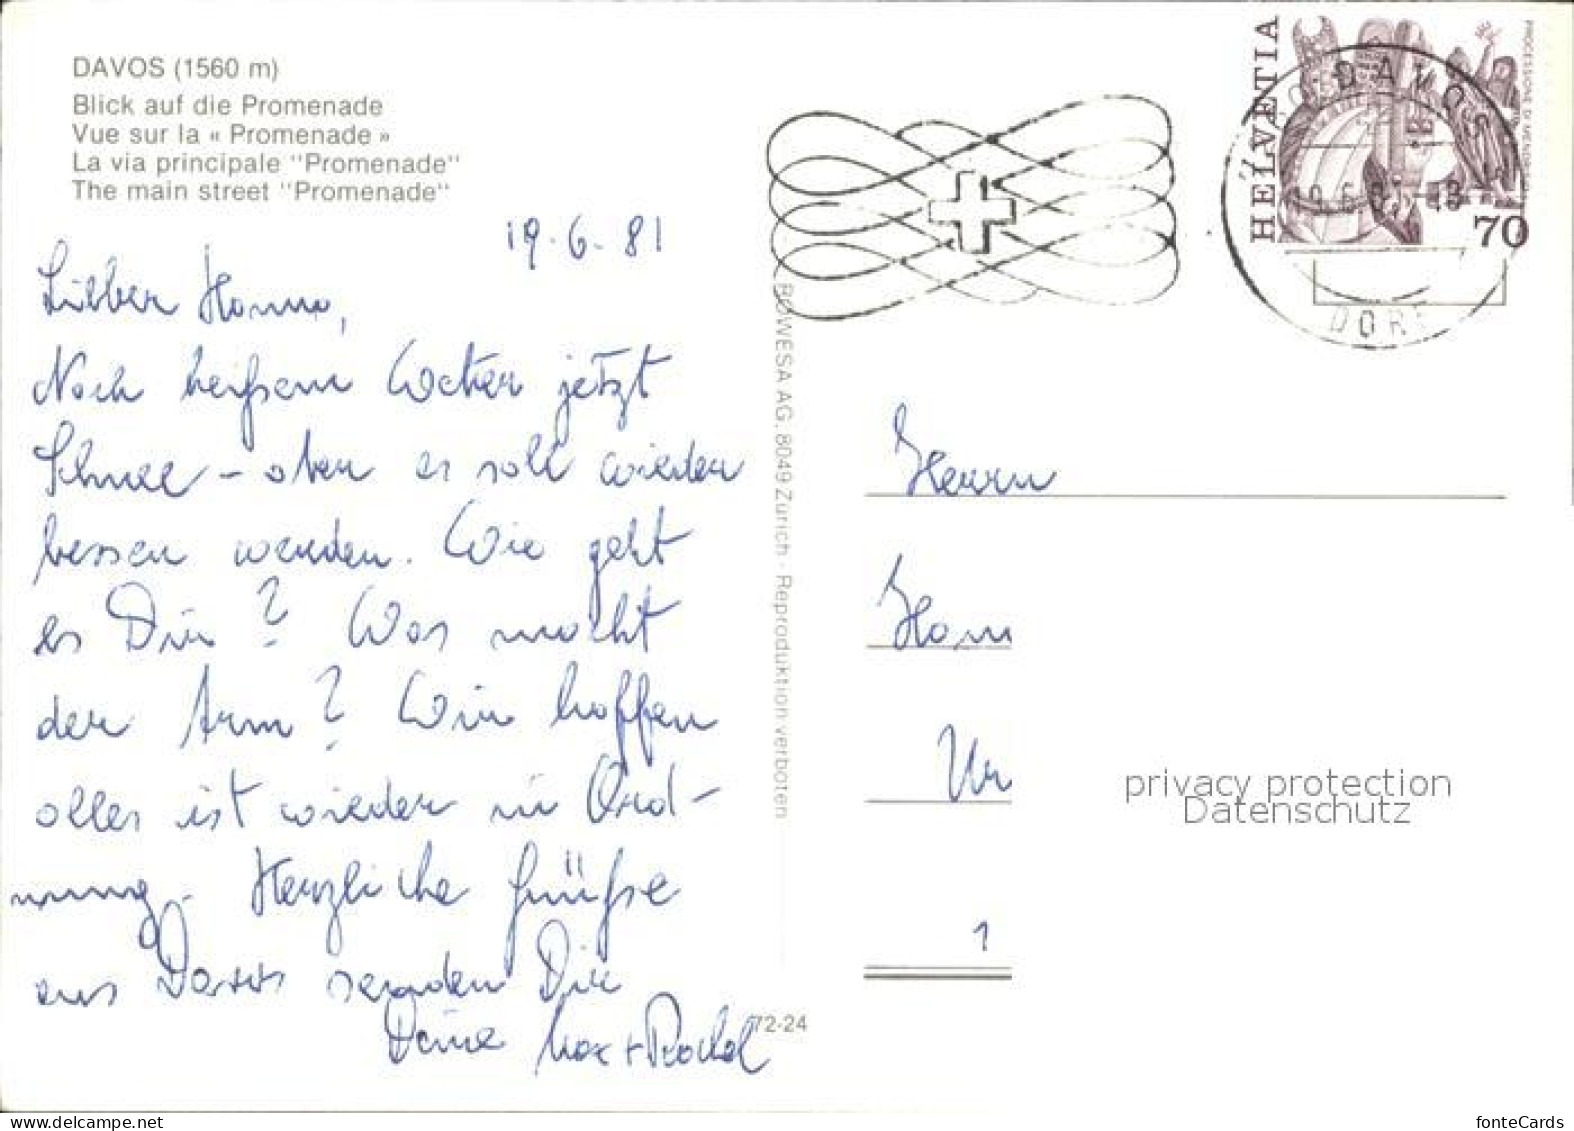 DAVOS (1560 m)
Blick auf die Promenade
Vue sur la « Promenade »
La via principale "Promenade"
The main street "Promenade"
19.6.81
Lieber Hanno,
Nach heißem Wetter jetzt
Schnee – aber es soll wieder
besser werden. Wie geht
es Dir? Was macht
der Arm? Wir hoffen
alles ist wieder in Ord-
nung. Herzliche Grüße
aus Davos senden Dir
Deine Max +
72-24
BOWESA AG, 8049 Zürich - Reproduktion verboten
HELVETIA
70
DAVOS
DORF
Herrn
privacy protection
Datenschutz
1
fonteCards